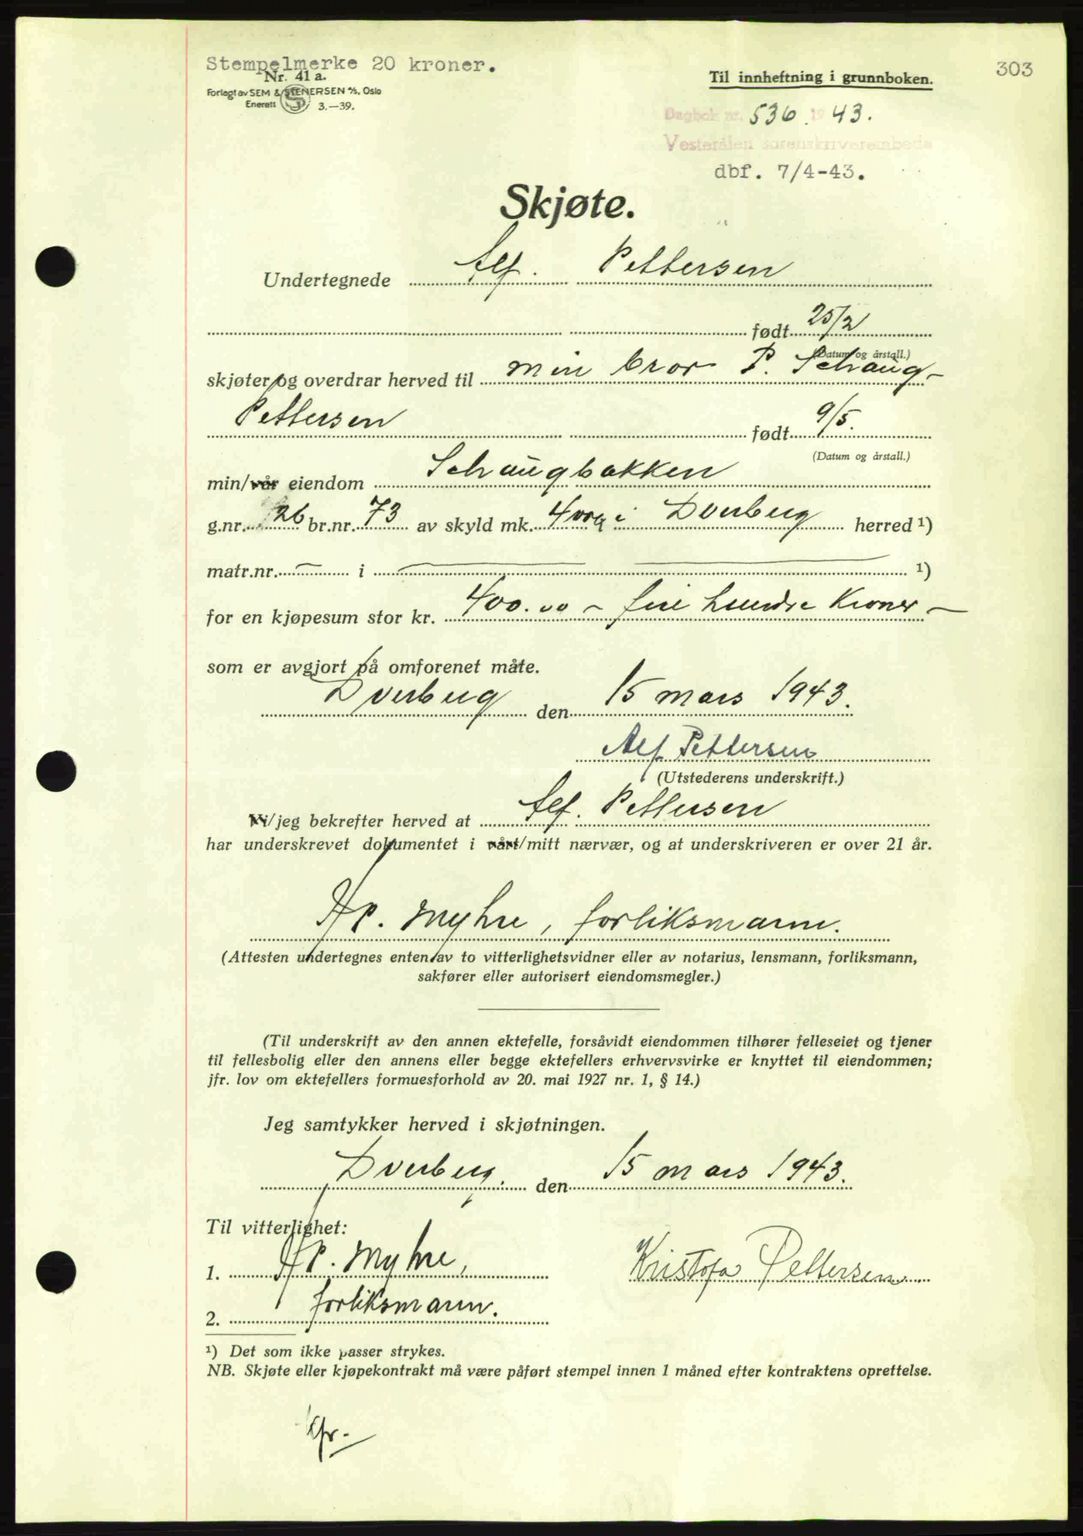 Stempelmerke 20 kroner.
Nr. 41 a.
Forlagt av SEM & STENERSEN A/S, Oslo
Enerett S 3.—39.
Til innheftning i grunnboken.
303
Dagbok nr. 536. 1943.
Vesterålen sorenskriverembede
dbf. 7/4-43.
Skjøte.
Undertegnede Alf. Pettersen
født 25/2
(Datum og årstall.)
skjøter og overdrar herved til min bror P. Schaug-
Pettersen født 9/5.
(Datum og årstall.)
min/vår eiendom Schaugbakken
g.nr. 26 br.nr. 73 av skyld mk. 4 øre i Dverberg herred ¹)
matr.nr. — i — — ¹)
for en kjøpesum stor kr. 400.00 – fire hundre Kroner –
som er avgjort på omforenet måte.
Dverberg den 15 mars 1943.
Alf Pettersen
(Utstederens underskrift.)
Vi/jeg bekrefter herved at Alf. Pettersen
har underskrevet dokumentet i vårt/mitt nærvær, og at underskriveren er over 21 år.
H P. Myhre, forliksmann.
(Attesten undertegnes enten av to vitterlighetsvidner eller av notarius, lensmann, forliksmann,
sakfører eller autorisert eiendomsmegler.)
(Til underskrift av den annen ektefelle, forsåvidt eiendommen tilhører felleseiet og tjener
til fellesbolig eller den annens eller begge ektefellers erhvervsvirke er knyttet til eiendommen;
jfr. lov om ektefellers formuesforhold av 20. mai 1927 nr. 1, § 14.)
Jeg samtykker herved i skjøtningen.
Dverberg. den 15 mars 1943.
Til vitterlighet:
1. H P. Myhre, Kristofa Pettersen
forliksmann.
2.
¹) Det som ikke passer strykes.
NB. Skjøte eller kjøpekontrakt må være påført stempel innen 1 måned efter kontraktens oprettelse.